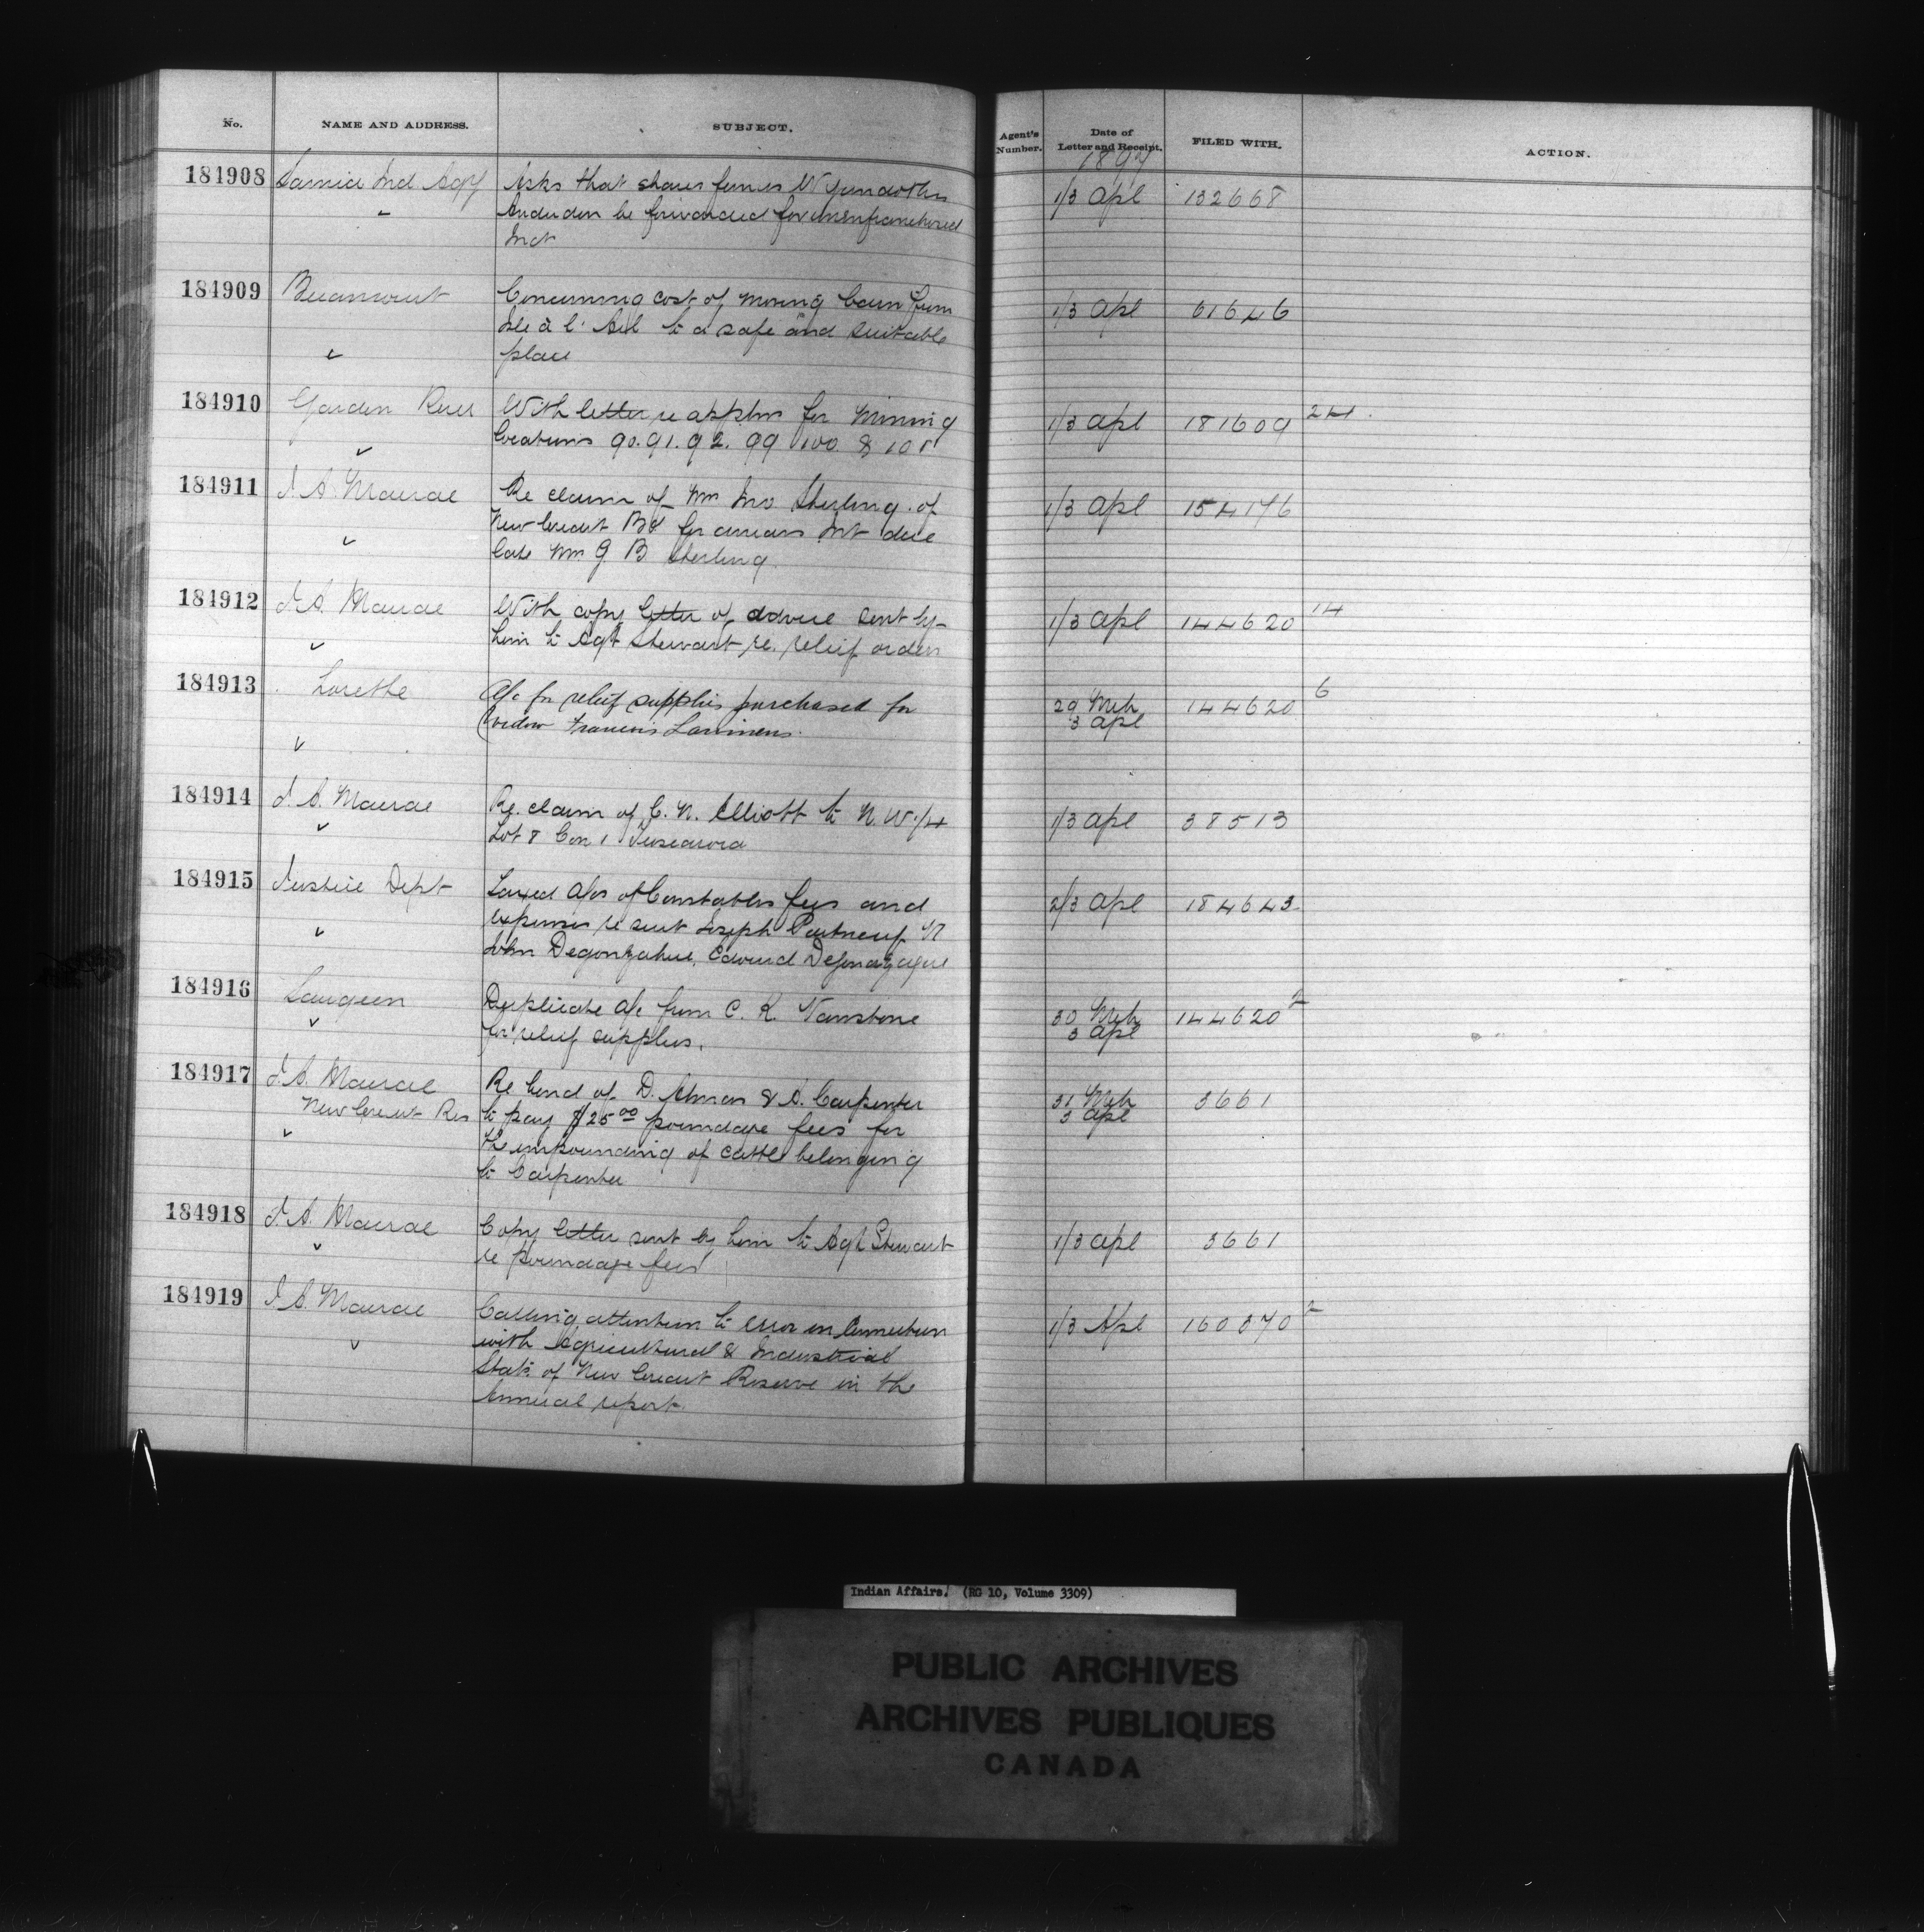 No. NAME AND ADDRESS. SUBJECT. Agent's Number. Date of Letter and Receipt. FILED WITH. ACTION.
1897
184908 Sarnia Ind Agy Asks that shares former Wyandotts 1/3 Apl 132668
Anderdon be forwarded for unenfranchised
Indt
184909 Becancourt Concerning cost of moving barn from 1/3 Apl 61646
Isle à l' Ail to a safe and suitable
place
184910 Garden River With letter re applns for Mining 1/3 Apl 181609 24
locations 90. 91. 92. 99 100 & 101
184911 J A. Macrae Re claim of Wm Jno Sterling of 1/3 Apl 154146
New Credit Bd for arrears Int due
late Wm. G. B Sterling.
184912 J. A. Macrae With copy letter of advice sent by 1/3 Apl 144620 14
him to Agt Stewart re. relief orders
184913 Lorette A/c for relief supplies purchased for 29 Mch 3 Apl 144620 6
widow Francois
184914 J. A. Macrae Re. claim of C. N. Elliott to N. W. 1/4 1/3 Apl 38513
Lot 8 Con 1 Tuscarora
184915 Justice Dept Taxed A/cs of Constables fees and 2/3 Apl 184643
expenses re suit Joseph Portneuf
John Degonzague, Edward Degonzague
184916 Saugeen Duplicate a/c from C. R. Vanstone 30 Mch 3 Apl 144620 2
for relief supplies.
184917 J. A. Macrae Re bond of D. Almas & A. Carpenter 31 Mch 3 Apl 3661
New Credit Res to pay $25 00 poundage fees for
the impounding of cattle belonging
to Carpenter
184918 J. A. Macrae Copy letter sent by him to Agt Stewart 1/3 Apl 3661
re poundage fees
184919 J A. Macrae Calling attention to error in Connection 1/3 Apl 160370 2
with Agricultural & Industrial
Stats of New Credit Reserve in the
Annual report.
Indian Affairs. (RG 10, Volume 3309)
PUBLIC ARCHIVES
ARCHIVES PUBLIQUES
CANADA